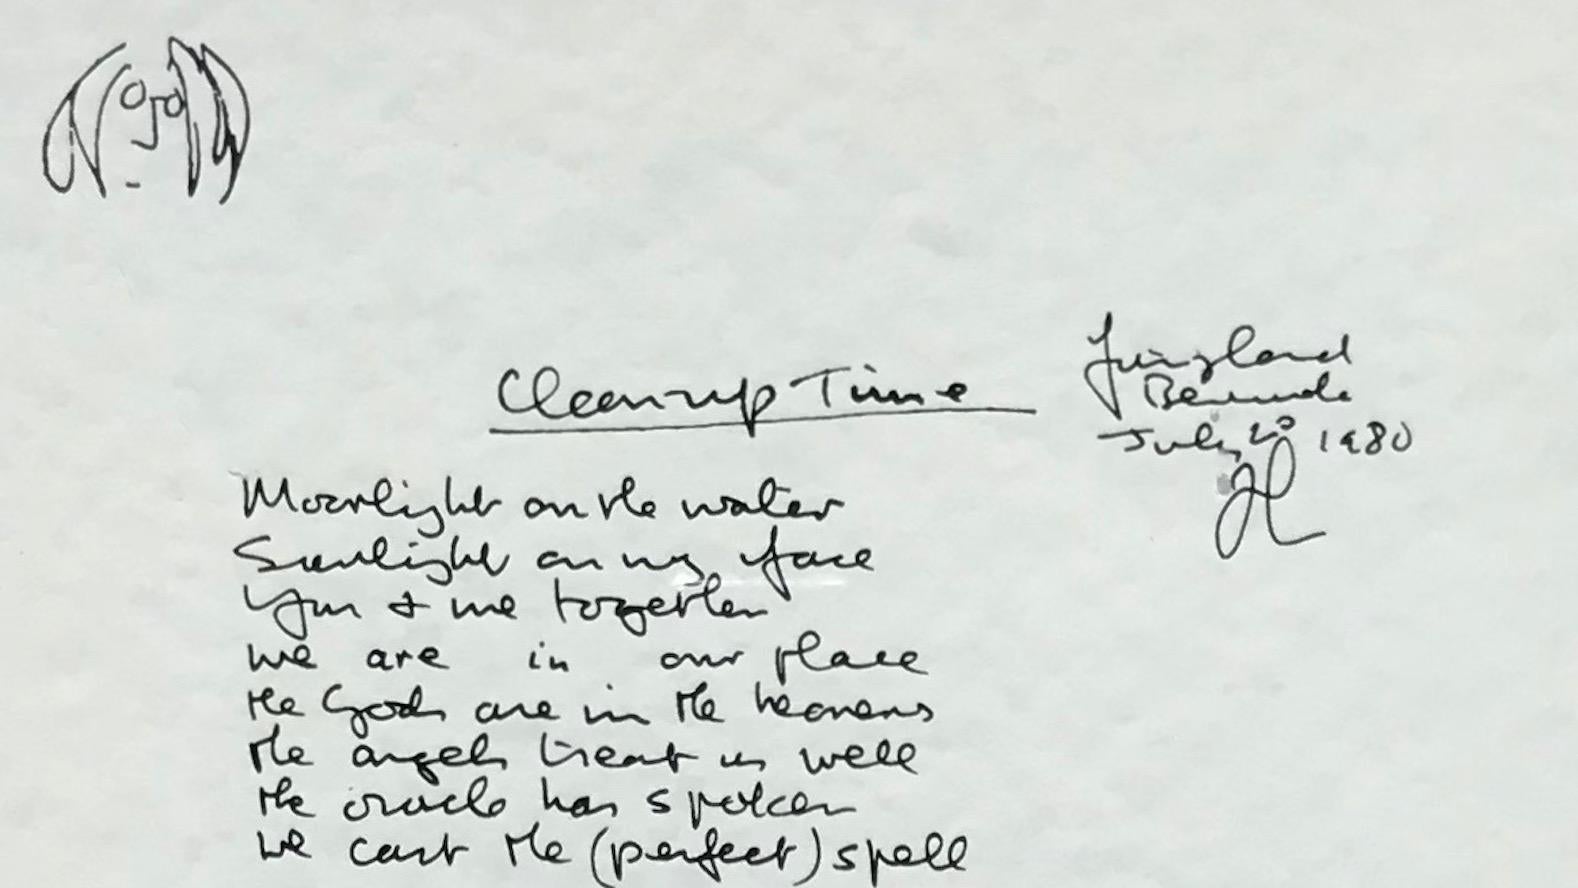 Cleanup Time
Fairyland
Bermuda
July 20 1980
JL
Moonlight on the water
Sunlight on my face
You & me together
we are in our place
the Gods are in the heavens
the angels treat us well
the oracle has spoken
we cast the (perfect) spell